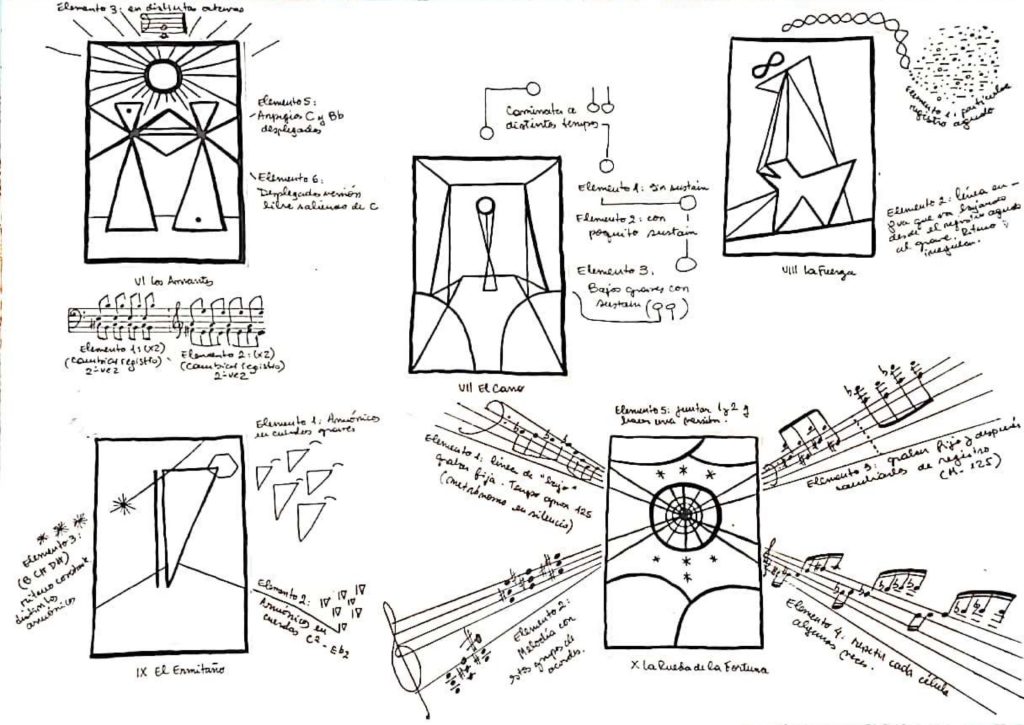 Elemento 3: en distintas octavas
Elemento 5:
Arpegios C y Bb
desplegados
Elemento 6:
Desplegado versión
libre saliendo de C
VI Los Amantes
Elemento 1: (x2)
(cambiar registro)
2ª vez
Elemento 2: (x2)
(cambiar registro)
2ª vez
Caminata a
distintos tempos
Elemento 1: Sin sustain
Elemento 2: con
poquito sustain
Elemento 3.
Bajos graves con
sustain
VII El Carro
Elemento 1: partículas
registro agudo
Elemento 2: línea
que va bajando
desde el registro agudo
al grave. Ritmo
irregular.
VIII La Fuerza
Elemento 1: Armónico
en cuerdas graves
Elemento 3:
(B C# D#)
ritmo constante
distinto
armónico
Elemento 2:
Armónicos en
cuerdas C2
- Eb2
IX El Ermitaño
Elemento 5: juntar 1 y 2 y
hacer una versión.
Elemento 1: línea de "bajo"
grabar fija. Tempo aprox 125
(metrónomo en silencio)
Elemento 3: grabar fijo y después
cambiarles de registro
(M. 125)
Elemento 2:
Melodía con
estos grupos de
acordes.
Elemento 4. repetir cada célula
algunas veces.
X La Rueda de la Fortuna